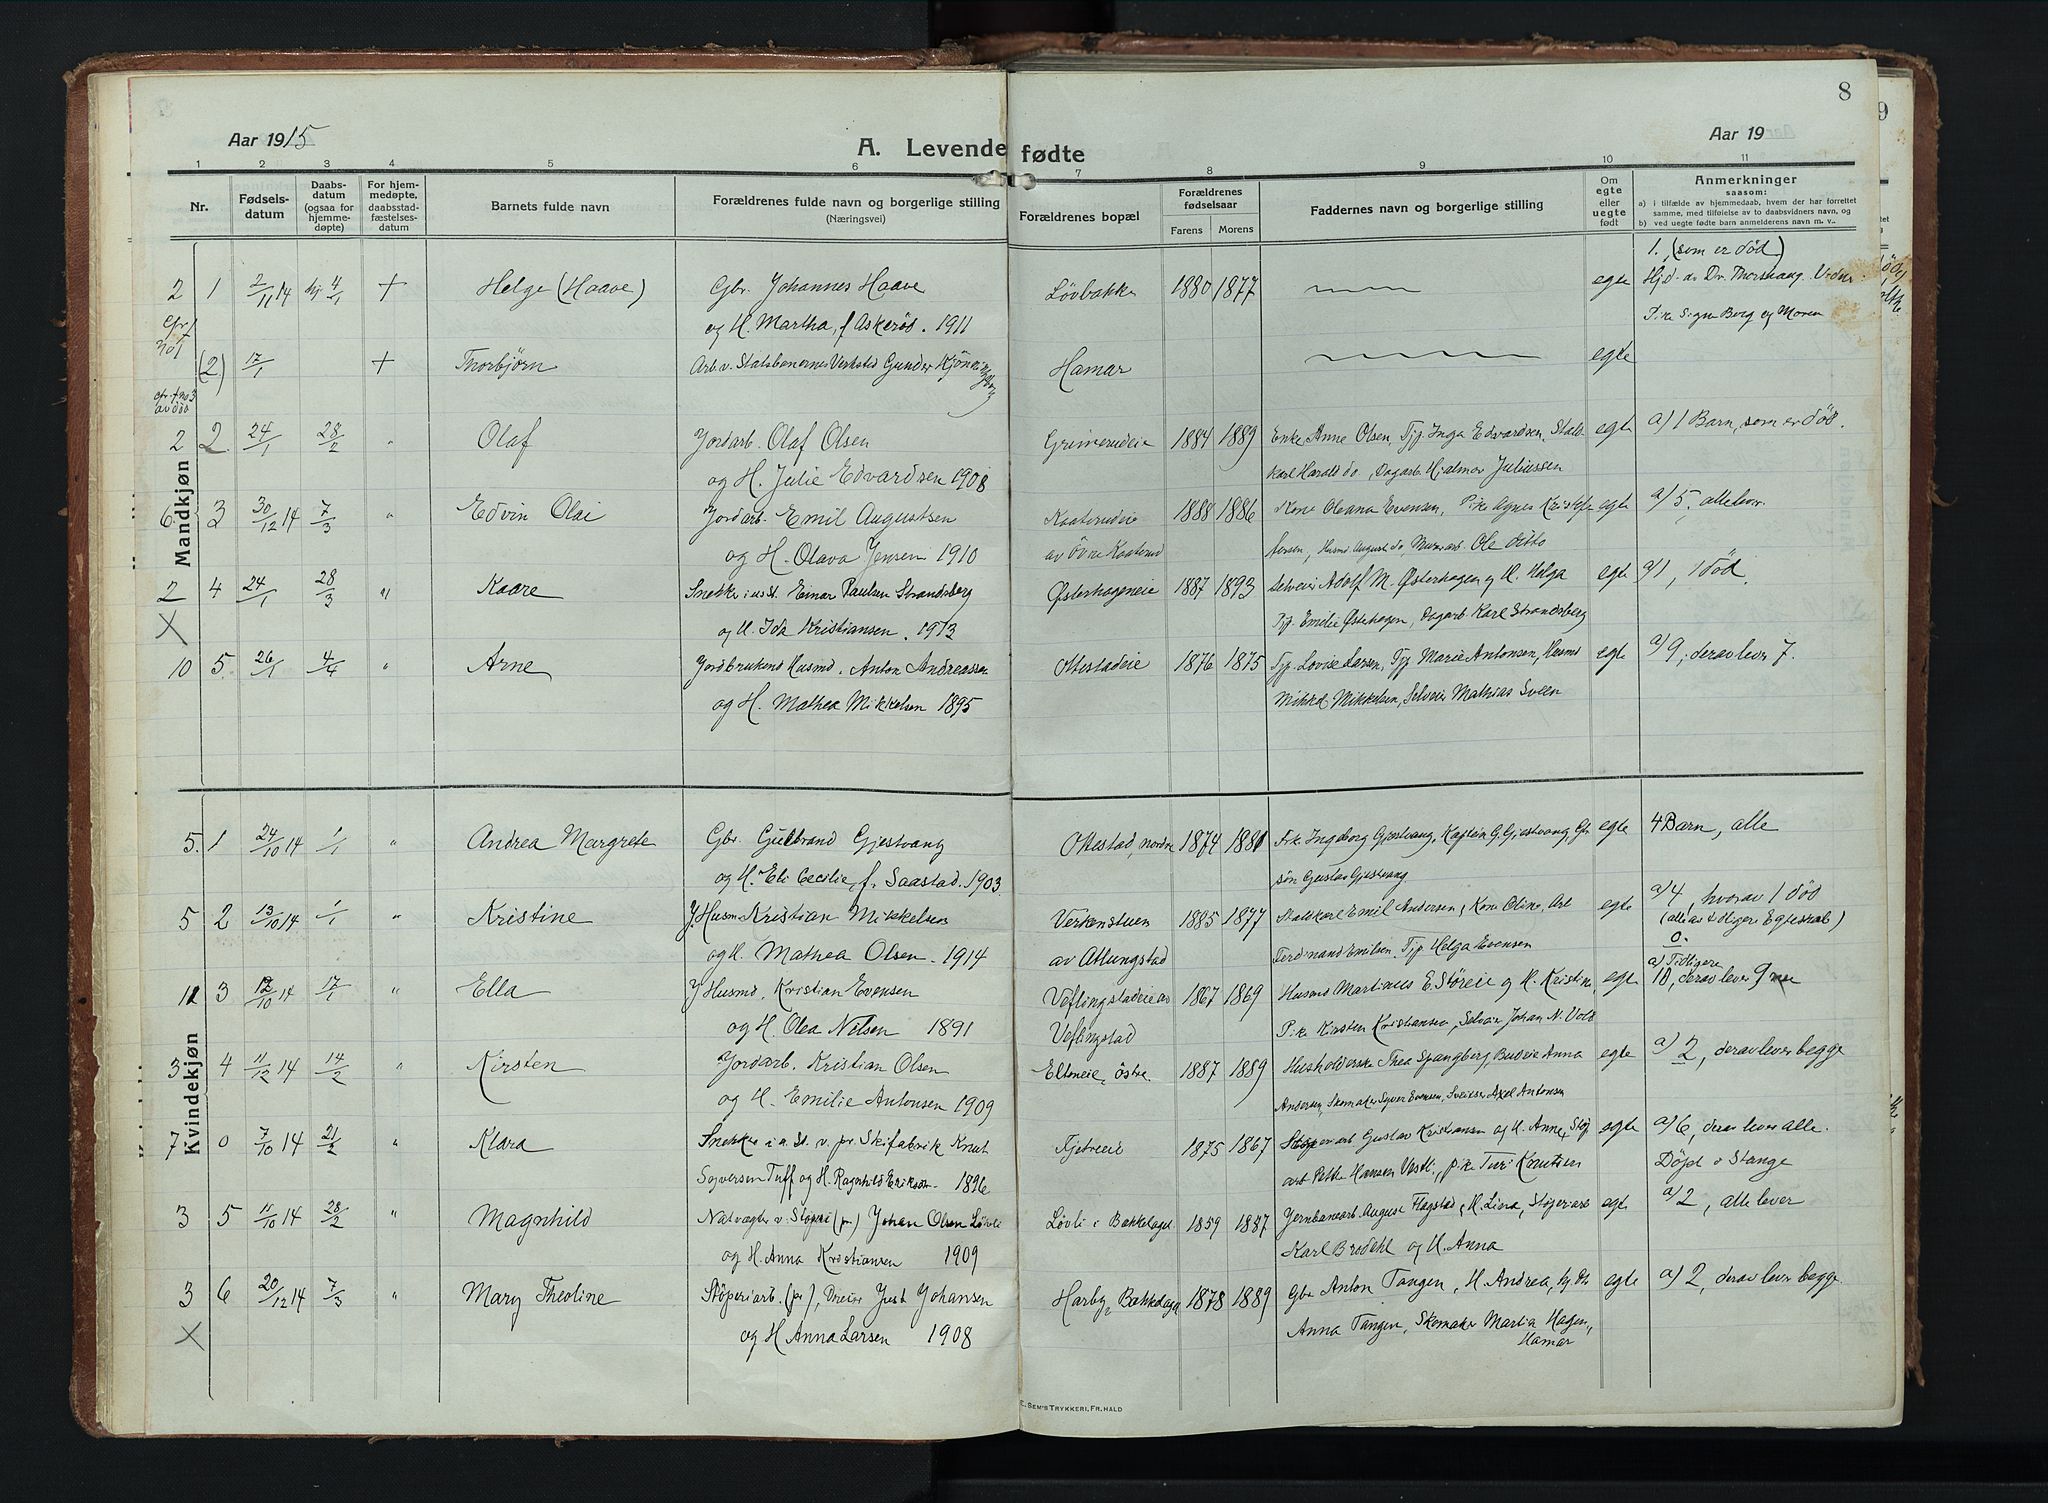 8
9
Aar 1915
A. Levende fødte
Aar 19
1 2 3 4 5 6 7 8 9 10 11
Nr.
Fødsels-
datum
Daabs-
datum
(ogsaa for
hjemme-
døpte)
For hjem-
medøpte,
daabsstad-
fæstelses-
datum
Barnets fulde navn
Forældrenes fulde navn og borgerlige stilling
(Næringsvei)
Forældrenes bopæl
Forældrenes
fødselsaar
Farens Morens
Faddernes navn og borgerlige stilling
Om
egte
eller
uegte
født
Anmerkninger
saasom:
a) i tilfælde av hjemmedaab, hvem der har forrettet
samme, med tilføielse av to daabsvidners navn, og
b) ved uegte fødte barn anmelderens navn m. v..
Mandkjøn
1. (som er død)
2 1 2/11 14 hj 4/1 + Helge (Haave) Gbr. Johannes Haave Løvbakke 1880 1877 egte Hjd. av Dr. Thorshaug. Vidner
og H. Martha, f Askerød. 1911 Pike Signe Berg og Moren
(2) 17/1 + Thorbjørn Arb. v. Statsbanernes Verksted Gunder Hamar egte
2 2 24/1 28/2 " Olaf Jordarb. Olaf Olsen Grimerudeie 1884 1889 Enke Anne Olsen, Tjp. Inga Edvardsen, Stald- egte a) 1 Barn, som er død.
og H. Julie Edvardsen 1908 karl Harald do, Dagarb. Hjalmar Juliussen
6 3 30/12 14 7/3 " Edvin Olai Jordarb. Emil Augustsen Kaaterudeie 1888 1886 Kone Oleana Evensen, Pike Agnes Kristof- egte a) 5, alle lever
og H. Olava Jensen 1910 av Övre Kaaterud fersen, Husmd August do, Murarb. Ole ditto
2 4 24/1 28/3 " Kaare Snekker i usst. Einar Paulsen Strandsberg Østerhageneie 1887 1893 Selveier Adolf M. Østerhagen og H. Helga egte a) 1, 1 død.
X og H. Ida Kristiansen. 1913 Tjp. Emilie Østerhagen, Dagarb Karl Strandsberg
10 5. 26/1 4/4 " Arne Jordbrukend Husmd. Anton Andreassen Ottestadeie 1876 1875 Tjp. Lovise Larsen, Tjp Marie Antonsen, Husmd egte a) 9, derav lever 7.
og H. Mathea Mikkelsen 1895 Mikkel Mikkelsen, Selveier Mathias Sveen
Kvindekjøn
5. 1 24/10 14 1/1 " Andrea Margrete Gbr. Gulbrand Gjestvang Ottestad, nordre 1874 1881 Frk. Ingeborg Gjestvang, Kaptein G. Gjestvang, Gbr egte 4 Barn, alle
og H. Eli Cecilie, f. Saastad. 1903 søn Gustav Gjestvang.
5 2 13/10 14 1/1 " Kristine J. Husm. Kristian Mikkelsen Verkenstuen 1885 1877 Staldkarl Emil Andersen, Kone Oline, Arb egte a) 4, hvorav 1 død
(alle av tidligere Egteskab)
og H. Mathea Olsen. 1914 av Atlungstad Ferdinand Emilsen, Tjp. Helga Evensen 0.
11 3 12/10 14 17/1 " Ella J Husmd. Kristian Evensen Veflingstadeie av 1867 1869 Husmd Martinus E. Støreie og H. Kristine, egte a) Tidligere
10, derav lever 9
og H. Olea Nilsen 1891 Veflingstad Pike Kirsten Kristiansen, Selveier Johan N. Vold
3 4 11/12 14 14/2 " Kirsten Jordarb. Kristian Olsen Eltoneie, østre. 1887 1889 Husholderske Thea Spangberg, Budeie Anna egte a) 2, derav lever begge
og H. Emilie Antonsen 1909 Andersen, Skomaker Syver Evensen, Sveitser Axel Antonsen
7 0 7/10 14 21/2 " Klara Snekker i a. St. v. pr. Skifabrik Knut Fjetreeie 1875 1867 Støperiarb Gustav Kristiansen og H. Anne, Støp egte a) 6, derav lever alle.
Syversen Tuff og H. Ragnhild Eriksen 1896 arb Petter Hansen Vestli, pike Turi Knutsen Døpt i Stange
3 5 11/10 14 28/2 " Magnhild Natvægter v. Støperi (pr.) Johan Olsen Løvli Løvli i Bakkelaget 1859 1887 Jernbanearb. August Flagstad, H. Lina, Støperiarb egte a) 2, alle lever
og H. Anna Kristiansen 1909 Karl Brodahl og H. Anna
3 6 20/12 14 7/3 " Mary Theoline Støperiarb. (pr), Just Johansen Harby, Bakkelaget 1878 1889 Gbr Anton Tangen, H. Andrea, egte a) 2, derav lever begge
X og H Anna Larsen 1908 Anna Tangen, Skomaker Martin Hagen,
Hamar
E. SEM'S TRYKKERI, FR.HALD